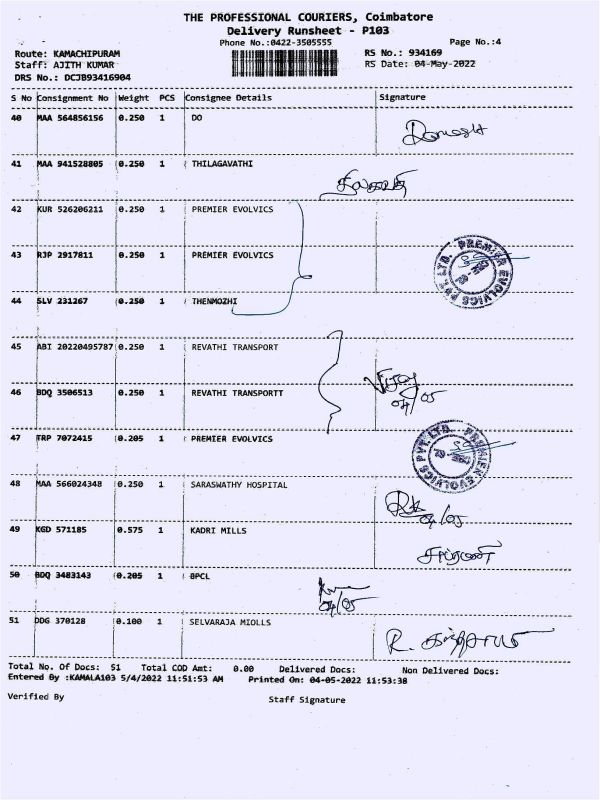 THE PROFESSIONAL COURIERS, Coimbatore
Delivery Runsheet - P103
Phone No.:0422-3505555 Page No.:4
Route: KAMACHIPURAM RS No.: 934169
Staff: AJITH KUMAR RS Date: 04-May-2022
DRS No.: DCJB93416904
S No Consignment No Weight PCS Consignee Details Signature
40 MAA 564856156 0.250 1 DO
41 MAA 941528805 0.250 1 THILAGAVATHI
திலகவதி
42 KUR 526206211 0.250 1 PREMIER EVOLVICS
43 RJP 2917811 0.250 1 PREMIER EVOLVICS
PREMIER EVOLVICS PVT. LTD.
44 SLV 231267 0.250 1 THENMOZHI
45 ABI 20220495787 0.250 1 REVATHI TRANSPORT
Vijay
46 BDQ 3506513 0.250 1 REVATHI TRANSPORTT
04/05
47 TRP 7072415 0.205 1 PREMIER EVOLVICS
PREMIER EVOLVICS PVT. LTD.
48 MAA 566024348 0.250 1 SARASWATHY HOSPITAL
04/05
49 KGD 571185 0.575 1 KADRI MILLS
50 BDQ 3483143 0.205 1 BPCL
04/05
51 DDG 370128 0.100 1 SELVARAJA MIOLLS
R.
Total No. Of Docs: 51 Total COD Amt: 0.00 Delivered Docs: Non Delivered Docs:
Entered By :KAMALA103 5/4/2022 11:51:53 AM Printed On: 04-05-2022 11:53:38
Verified By Staff Signature